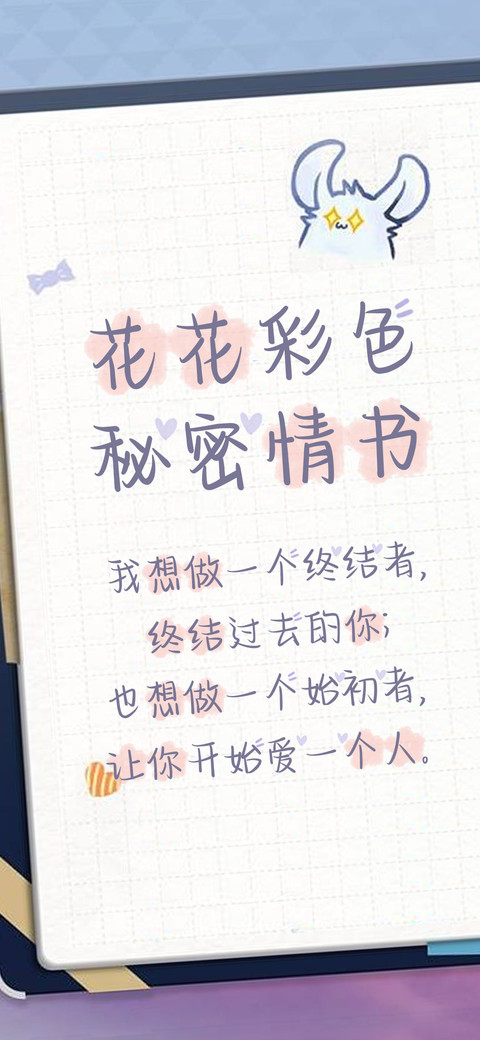 花花彩色
秘密情书
我想做一个终结者,
终结过去的你;
也想做一个始初者,
让你开始爱一个人。